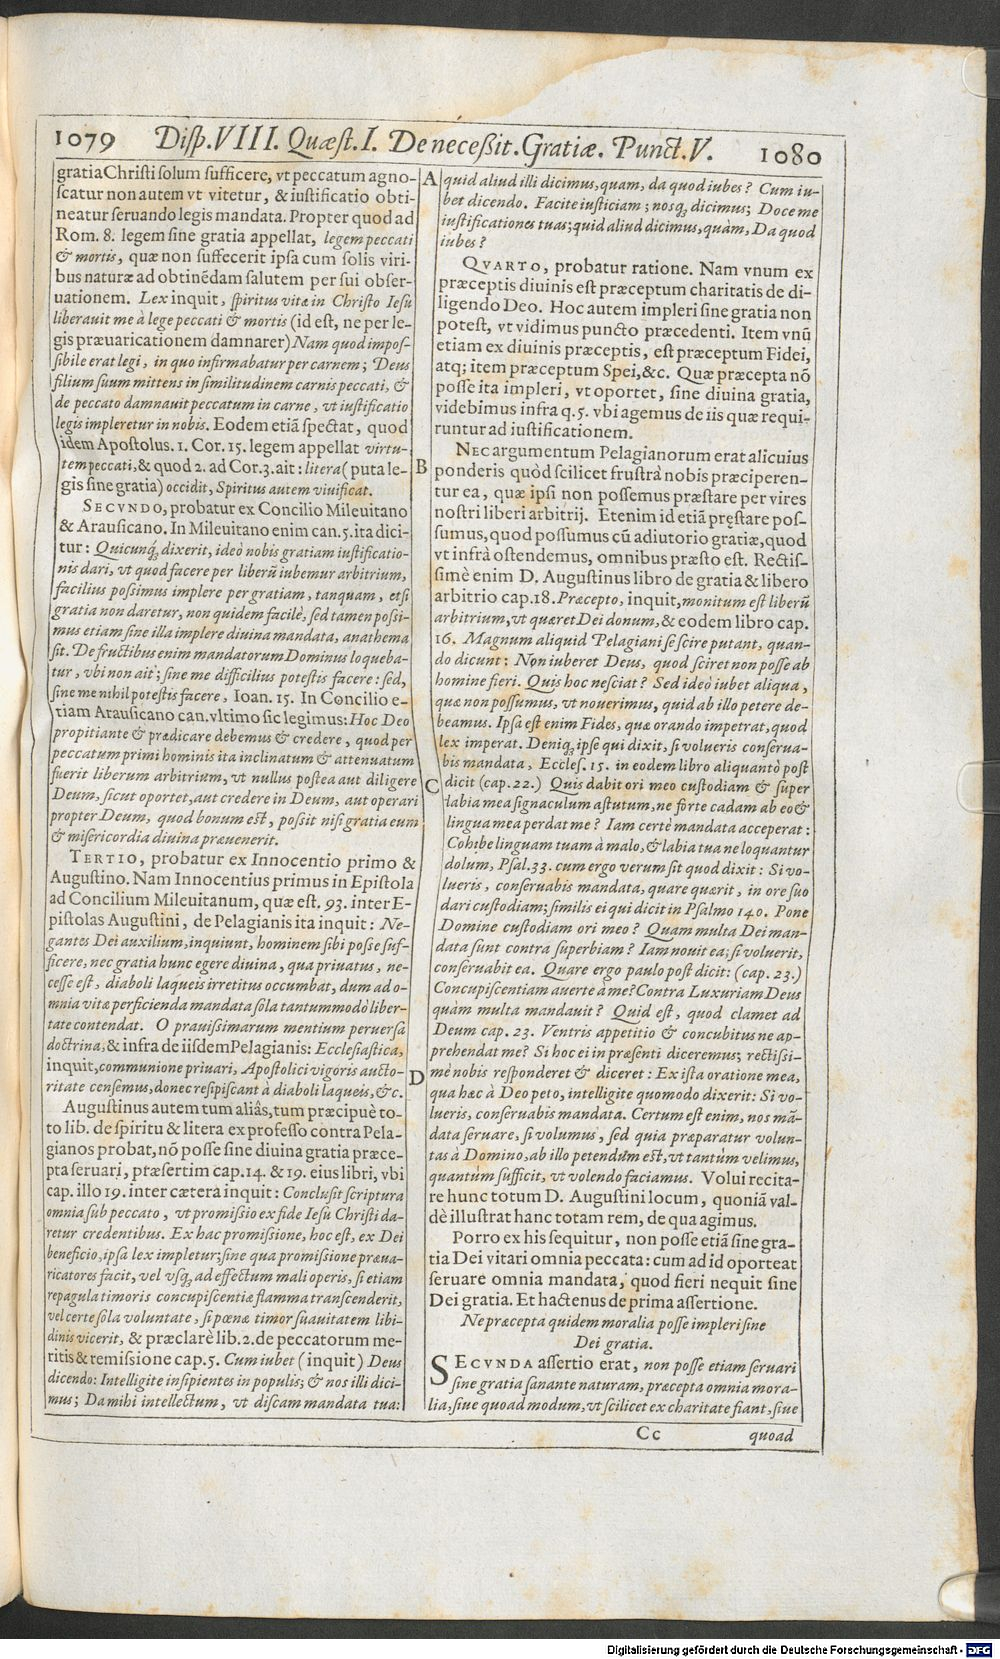 1079 Disp. VIII. Quæst. I. De neceßit. Gratiæ. Punct. V. 1080
gratia Christi solum sufficere, vt peccatum agno-
scatur non autem vt vitetur, & iustificatio obti-
neatur seruando legis mandata. Propter quod ad
Rom. 8. legem sine gratia appellat, legem peccati
& mortis, quæ non suffecerit ipsa cum solis viri-
bus naturæ ad obtinēdam salutem per sui obser-
uationem. Lex inquit, spiritus vitæ in Christo Iesu
liberauit me à lege peccati & mortis (id est, ne per le-
gis præuaricationem damnarer) Nam quod impos-
sibile erat legi, in quo infirmabatur per carnem; Deus
filium suum mittens in similitudinem carnis peccati, &
de peccato damnauit peccatum in carne, vt iustificatio
legis impleretur in nobis. Eodem etiā spectat, quod
idem Apostolus. 1. Cor. 15. legem appellat virtu-
tem peccati, & quod 2. ad Cor. 3. ait: litera (puta le-
gis sine gratia) occidit, Spiritus autem viuificat.
SECVNDO, probatur ex Concilio Mileuitano
& Arausicano. In Mileuitano enim can. 5. ita dici-
tur: Quicunq́; dixerit, ideò nobis gratiam iustificatio-
nis dari, vt quod facere per liberū iubemur arbitrium,
facilius possimus implere per gratiam, tanquam, etsi
gratia non daretur, non quidem facilè, sed tamen possi-
mus etiam sine illa implere diuina mandata, anathema
sit. De fructibus enim mandatorum Dominus loqueba-
tur, vbi non ait; sine me difficilius potestis facere: sed,
sine me nihil potestis facere, Ioan. 15. In Concilio e-
tiam Arausicano can. vltimo sic legimus: Hoc Deo
propitiante & prædicare debemus & credere, quod per
peccatum primi hominis ita inclinatum & attenuatum
fuerit liberum arbitrium, vt nullus postea aut diligere
Deum, sicut oportet, aut credere in Deum, aut operari
propter Deum, quod bonum est, possit nisi gratia eum
& misericordia diuina præuenerit.
TERTIO, probatur ex Innocentio primo &
Augustino. Nam Innocentius primus in Epistola
ad Concilium Mileuitanum, quæ est, 93. inter E-
pistolas Augustini, de Pelagianis ita inquit: Ne-
gantes Dei auxilium, inquiunt, hominem sibi posse suf-
ficere, nec gratia hunc egere diuina, qua priuatus, ne-
cesse est, diaboli laqueis irretitus occumbat, dum ad o-
mnia vitæ perficienda mandata sola tantummodò liber-
tate contendat. O prauissimarum mentium peruersa
doctrina, & infra de iisdem Pelagianis: Ecclesiastica,
inquit, communione priuari, Apostolici vigoris aucto-
ritate censemus, donec resipiscant à diaboli laqueis, &c.
Augustinus autem tum aliâs, tum præcipuè to-
to lib. de spiritu & litera ex professo contra Pela-
gianos probat, nō posse sine diuina gratia præce-
pta seruari, præsertim cap. 14. & 19. eius libri, vbi
cap. illo 19. inter cætera inquit: Conclusit scriptura
omnia sub peccato, vt promissio ex fide Iesu Christi da-
retur credentibus. Ex hac promissione, hoc est, ex Dei
beneficio, ipsa lex impletur; sine qua promissione præua-
ricatores facit, vel vsq́; ad effectum mali operis, si etiam
repagula timoris concupiscentiæ flamma transcenderit,
vel certe sola voluntate, si pœnæ timor suauitatem libi-
dinis vicerit, & præclarè lib. 2. de peccatorum me-
ritis & remissione cap. 5. Cum iubet (inquit) Deus
dicendo: Intelligite insipientes in populis; & nos illi dici-
mus; Da mihi intellectum, vt discam mandata tua:
A
B
C
D
quid aliud illi dicimus, quam, da quod iubes? Cum iu-
bet dicendo. Facite iusticiam; nosq́; dicimus; Doce me
iustificationes tuas; quid aliud dicimus, quàm, Da quod
iubes?
QVARTO, probatur ratione. Nam vnum ex
præceptis diuinis est præceptum charitatis de di-
ligendo Deo. Hoc autem impleri sine gratia non
potest, vt vidimus puncto præcedenti. Item vnū
etiam ex diuinis præceptis, est præceptum Fidei,
atq; item præceptum Spei, &c. Quæ præcepta nō
posse ita impleri, vt oportet, sine diuina gratia,
videbimus infra q. 5. vbi agemus de iis quæ requi-
runtur ad iustificationem.
NEC argumentum Pelagianorum erat alicuius
ponderis quòd scilicet frustrà nobis præciperen-
tur ea, quæ ipsi non possemus præstare per vires
nostri liberi arbitrij. Etenim id etiā pręstare pos-
sumus, quod possumus cū adiutorio gratiæ, quod
vt infrà ostendemus, omnibus præsto est. Rectis-
simè enim D. Augustinus libro de gratia & libero
arbitrio cap. 18. Præcepto, inquit, monitum est liberū
arbitrium, vt quæret Dei donum, & eodem libro cap.
16. Magnum aliquid Pelagiani se scire putant, quan-
do dicunt: Non iuberet Deus, quod sciret non posse ab
homine fieri. Quis hoc nesciat? Sed ideò iubet aliqua,
quæ non possumus, vt nouerimus, quid ab illo petere de-
beamus. Ipsa est enim Fides, quæ orando impetrat, quod
lex imperat. Deniq́; ipse qui dixit, si volueris conserua-
bis mandata, Eccles. 15. in eodem libro aliquantò post
dicit (cap. 22.) Quis dabit ori meo custodiam & super
labia mea signaculum astutum, ne fortè cadam ab eo &
lingua mea perdat me? Iam certè mandata acceperat:
Cohibe linguam tuam à malo, & labia tua ne loquantur
dolum, Psal. 33. cum ergo verum sit quod dixit: Si vo-
lueris, conseruabis mandata, quare quærit, in ore suo
dari custodiam; similis ei qui dicit in Psalmo 140. Pone
Domine custodiam ori meo? Quam multa Dei man-
data sunt contra superbiam? Iam nouit ea; si voluerit,
conseruabit ea. Quare ergo paulo post dicit: (cap. 23.)
Concupiscentiam auerte à me? Contra Luxuriam Deus
quàm multa mandauit? Quid est, quod clamet ad
Deum cap. 23. Ventris appetitio & concubitus ne ap-
prehendat me? Si hoc ei in præsenti diceremus; rectissi-
mè nobis responderet & diceret: Ex ista oratione mea,
qua hæc à Deo peto, intelligite quomodo dixerit: Si vo-
lueris, conseruabis mandata. Certum est enim, nos mā-
data seruare, si volumus, sed quia præparatur volun-
tas à Domino, ab illo petendum est, vt tantùm velimus,
quantùm sufficit, vt volendo faciamus. Volui recita-
re hunc totum D. Augustini locum, quoniā val-
dè illustrat hanc totam rem, de qua agimus.
Porro ex his sequitur, non posse etiā sine gra-
tia Dei vitari omnia peccata: cum ad id oporteat
seruare omnia mandata, quod fieri nequit sine
Dei gratia. Et hactenus de prima assertione.
Ne præcepta quidem moralia posse impleri sine
Dei gratia.
SECVNDA assertio erat, non posse etiam seruari
sine gratia sanante naturam, præcepta omnia mora-
lia, siue quoad modum, vt scilicet ex charitate fiant, siue
Cc quoad
Digitalisierung gefördert durch die Deutsche Forschungsgemeinschaft - DFG